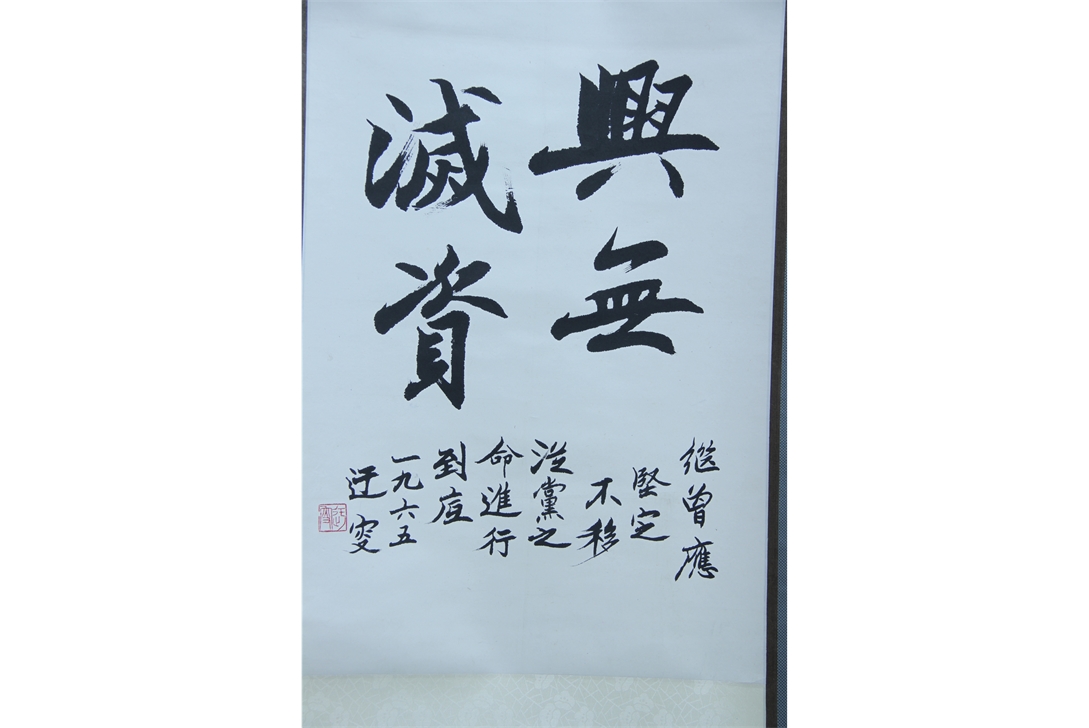 興無
滅資
繼曾應
堅定
不移
從黨之
命進行
到底
一九六五
迂叟